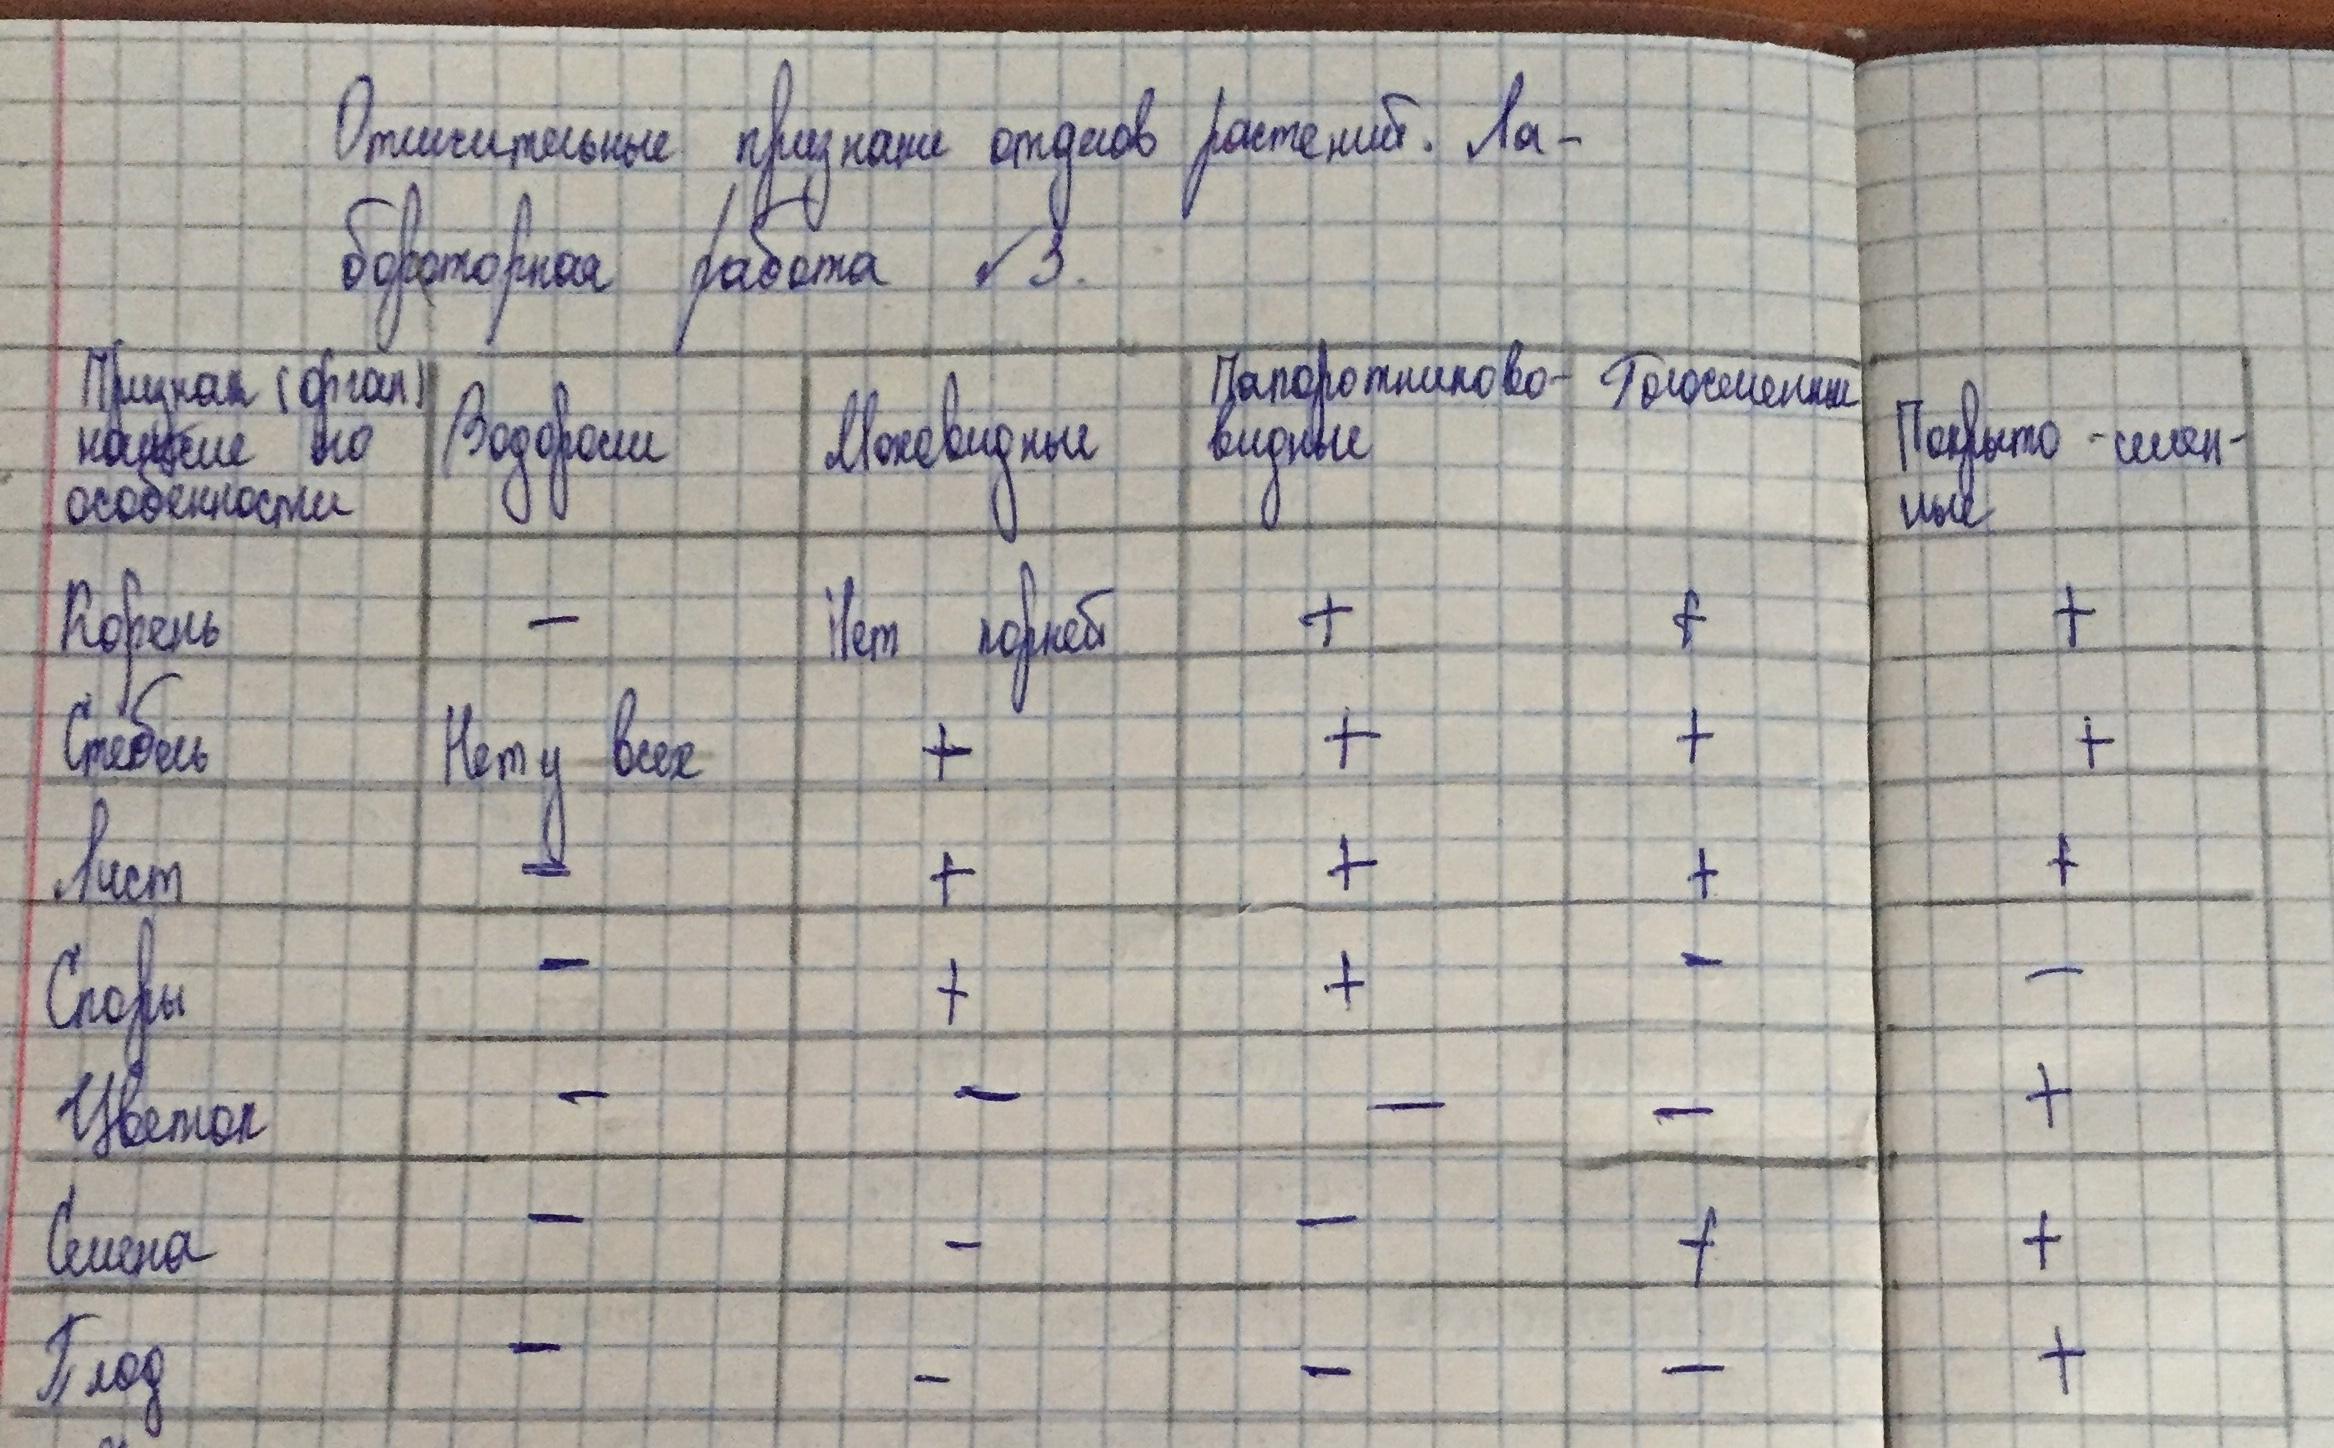 Отличительные признаки отделов растений. Ла-
бораторная работа №3.
Признак (орган) Водоросли Моховидные Папоротниково- Голосеменные Покрыто-семен-
особенности видные ные
Корень − Нет корней + + +
Стебель Нет у всех + + + +
Лист − + + + +
Споры − + + − −
Цветок − − − − +
Семена − − − + +
Плод − − − − +